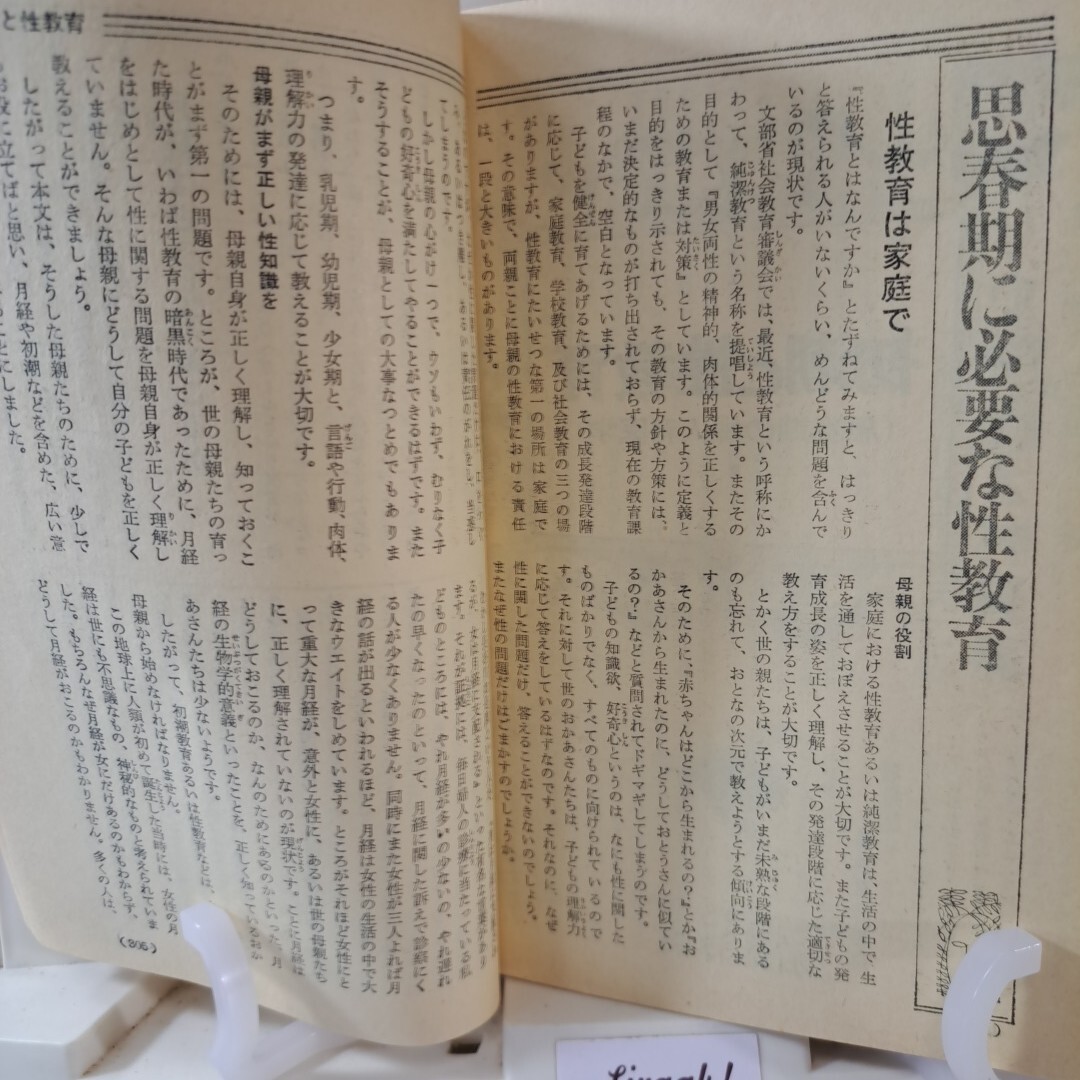 思春期に必要な性教育
性教育は家庭で
『性教育とはなんですか』とたずねてみますと、はっきり
と答えられる人がいないくらい、めんどうな問題を含んで
いるのが現状です。
文部省社会教育審議会では、最近、性教育という呼称にか
わって、純潔教育という名称を提唱しています。またその
目的として『男女両性の精神的、肉体的関係を正しくする
ための教育または対策』としています。このように定義と
目的をはっきり示されても、その教育の方針や方策には、
いまだ決定的なものが打ち出されておらず、現在の教育課
程のなかで、空白となっています。
子どもを健全に育てあげるためには、その成長発達段階
に応じて、家庭教育、学校教育、及び社会教育の三つの場
がありますが、性教育にたいせつな第一の場所は家庭で
す。その意味で、両親ことに母親の性教育における責任
は、一段と大きいものがあります。
母親の役割
家庭における性教育あるいは純潔教育は、生活の中で、生
活を通しておぼえさせることが大切です。また子どもの発
育成長の姿を正しく理解し、その発達段階に応じた適切な
教え方をすることが大切です。
とかく世の親たちは、子どもがいまだ未熟な段階にある
のも忘れて、おとなの次元で教えようとする傾向にありま
す。
そのために、『赤ちゃんはどこから生まれるの？』とか『お
かあさんから生まれたのに、どうしておとうさんに似てい
るの？』などと質問されてドギマギしてしまうのです。
子どもの知識欲、好奇心というのは、なにも性に関した
ものばかりでなく、すべてのものに向けられているので
す。それに対して世のおかあさんたちは、子どもの理解力
に応じて答えをしているはずなのです。それなのに、なぜ
性に関した問題だけ、答えることができないのでしょう。
またなぜ性の問題だけはごまかすのでしょうか。
と性教育
てしまうのです。
しかし母親の心がけ一つで、ウソもいわず、むりなく子
どもの好奇心を満たしてやることができるはずです。また
そうすることが、母親としての大事なつとめでもありま
す。
つまり、乳児期、幼児期、少女期と、言語や行動、肉体、
理解力の発達に応じて教えることが大切です。
母親がまず正しい性知識を
そのためには、母親自身が正しく理解し、知っておくこ
とがまず第一の問題です。ところが、世の母親たちの育っ
た時代が、いわば性教育の暗黒時代であったために、月経
をはじめとして性に関する問題を母親自身が正しく理解し
ていません。そんな母親にどうして自分の子どもを正しく
教えることができましょう。
したがって本文は、そうした母親たちのために、少しで
お役に立てばと思い、月経や初潮などを含めた、広い意
ことにしました。
ます。それが証拠には、毎日婦人の診療に当たっている私
どものところには、やれ月経が多いの少ないの、やれ遅れ
たの早くなったのといって、月経に関した訴えで診察にく
る人が少なくありません。同時にまた女性が三人よれば月
経の話が出るといわれるほど、月経は女性の生活の中で大
きなウエイトをしめています。ところがそれほど女性にと
って重大な月経が、意外と女性に、あるいは世の母親たち
に、正しく理解されていないのが現状です。ことに月経は
どうしておこるのか、なんのためにあるのかといった、月
経の生物学的意義といったことを、正しく知っているおか
あさんたちは少ないようです。
したがって、初潮教育あるいは性教育などは、
母親から始めなければなりません。
この地球上に人類が初めて誕生した当時には、女性の月
経は世にも不思議なもの、神秘的なものと考えられていま
した。もちろんなぜ月経が女にだけあるのかもわからず、
どうして月経がおこるのかもわかりません。多くの人は、
(305)